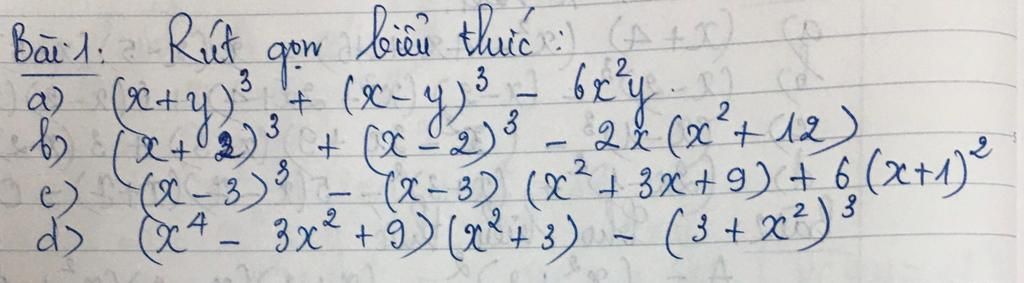 Bài 1: Rút gọn biểu thức:
a) (x+y)³ + (x-y)³ - 6x²y.
b) (x+2)³ + (x-2)³ - 2x(x²+12)
c) (x-3)³ - (x-3)(x²+3x+9) + 6(x+1)²
d) (x⁴ - 3x² + 9)(x²+3) - (3+x²)³